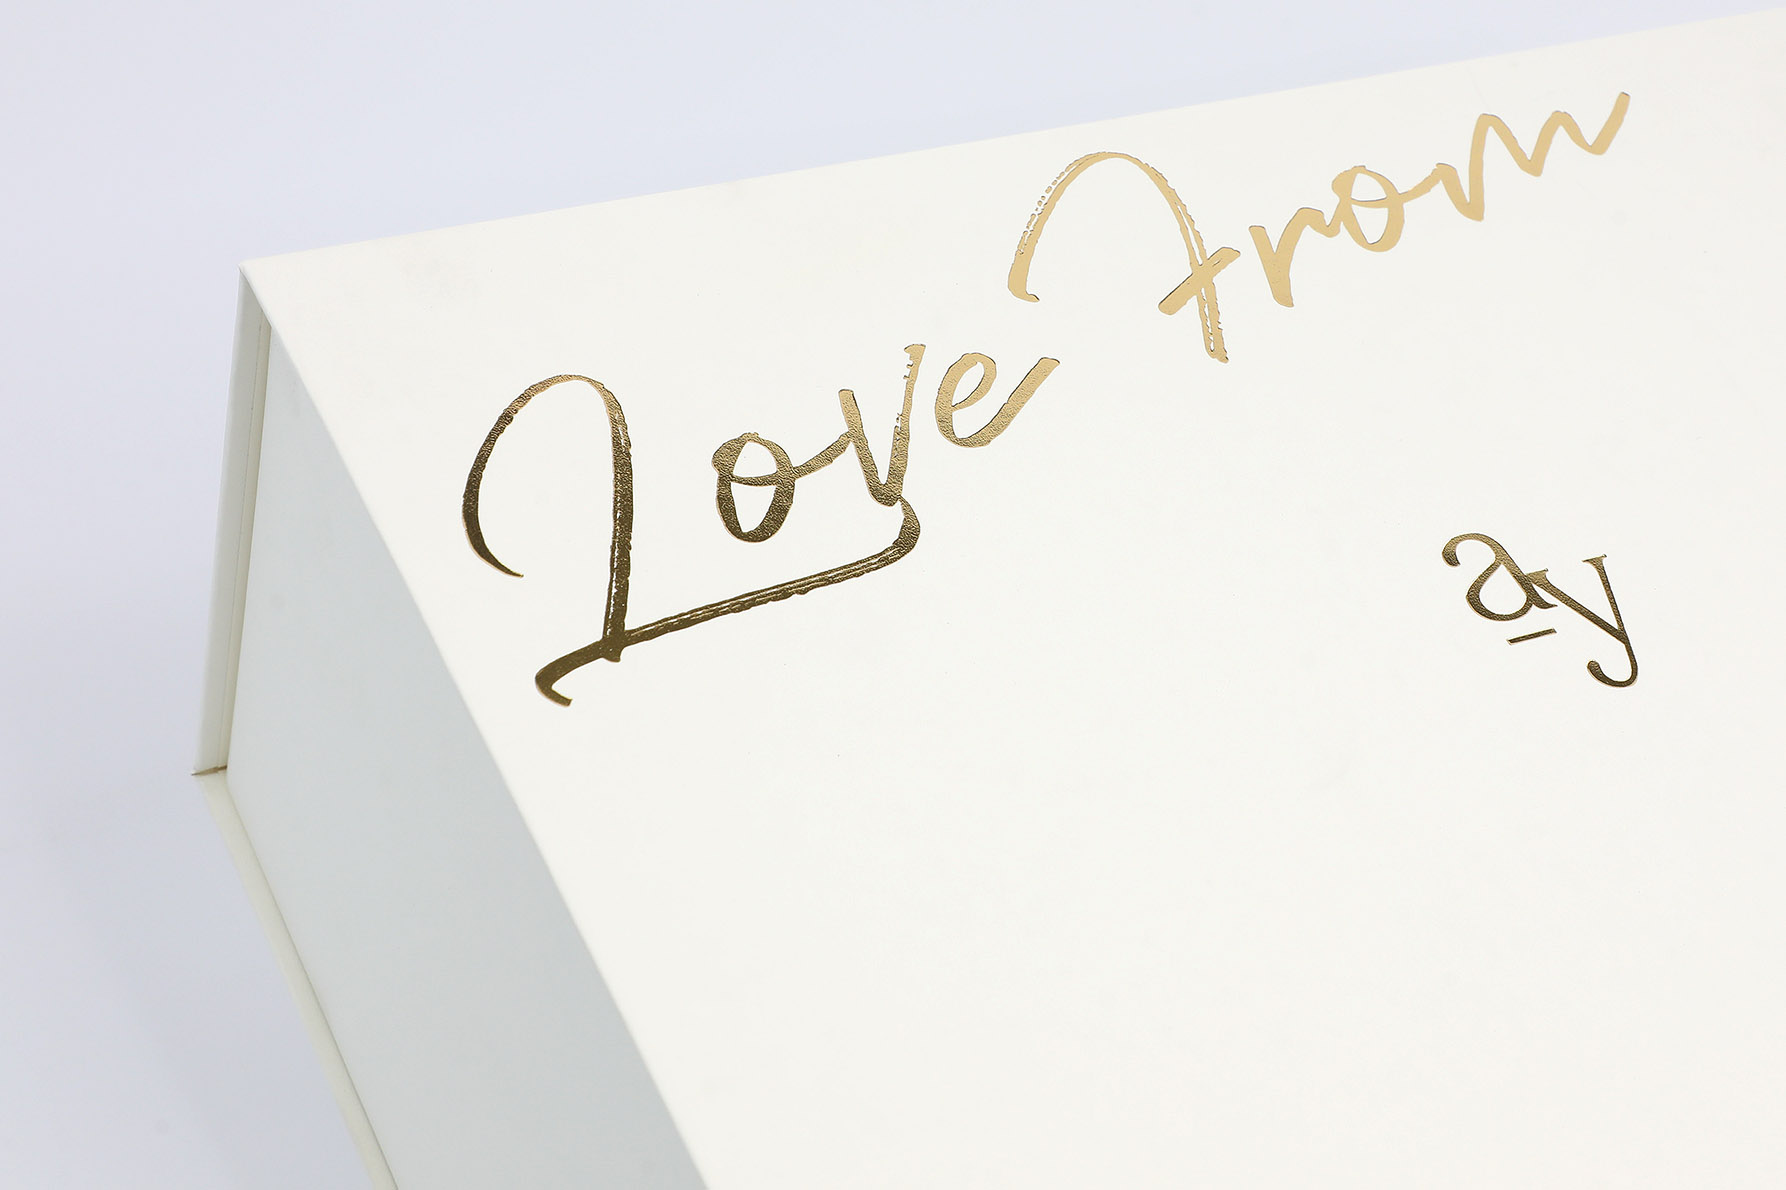 Love From
ay